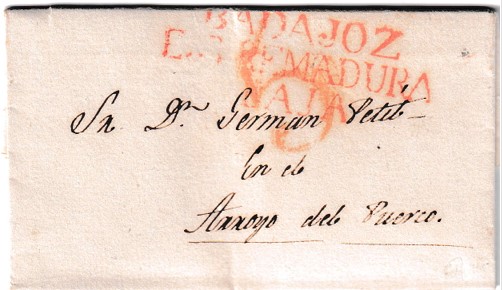 BADAJOZ
ESTREMADURA
BAJA
Sr. Dn. German Petit
En el
Arroyo del Puerco.